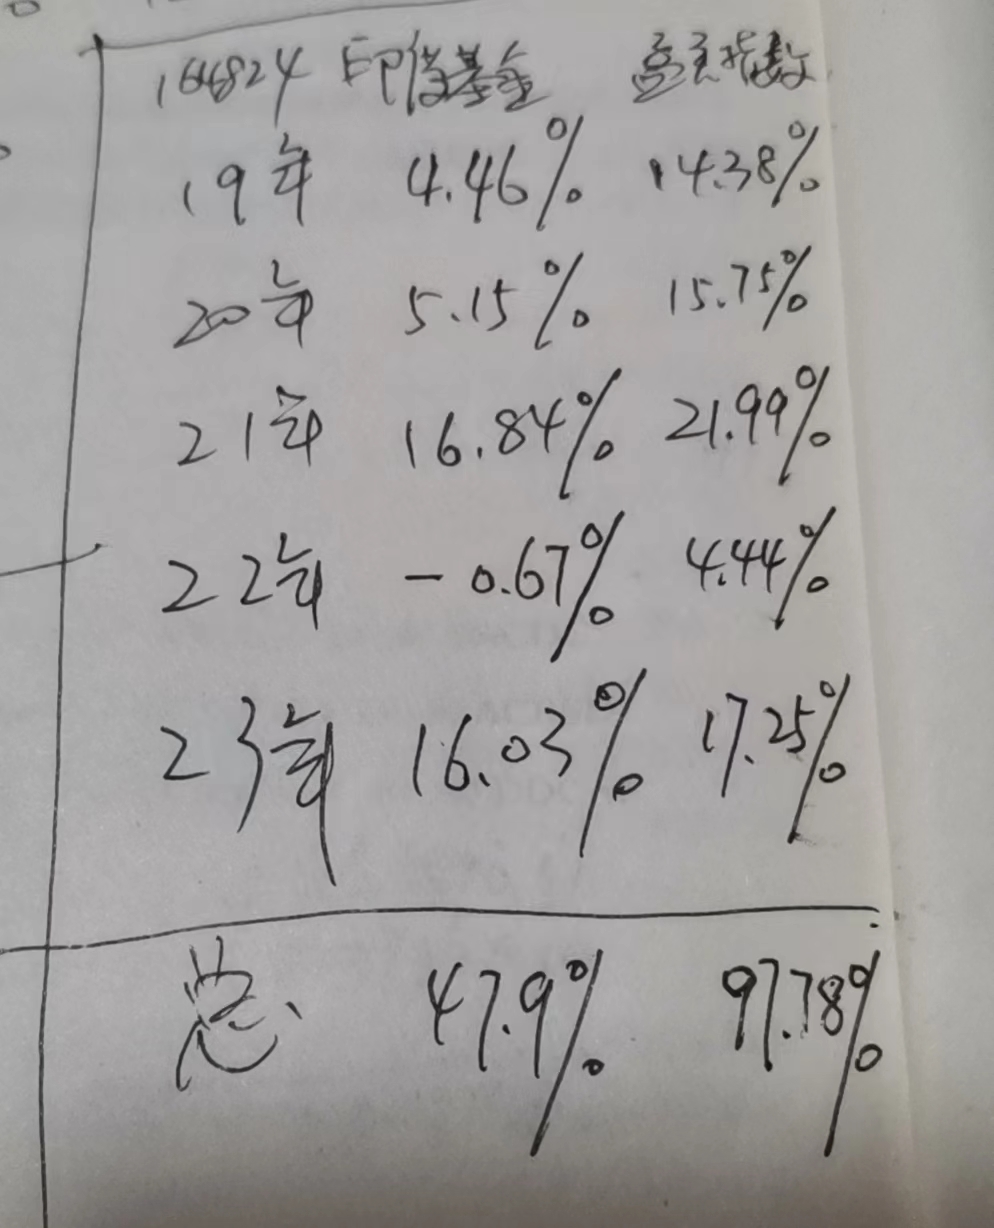 164824 印度基金 孟买指数
19年 4.46% 14.38%
20年 5.15% 15.75%
21年 16.84% 21.99%
22年 -0.67% 4.44%
23年 16.03% 17.25%
总 47.9% 97.78%